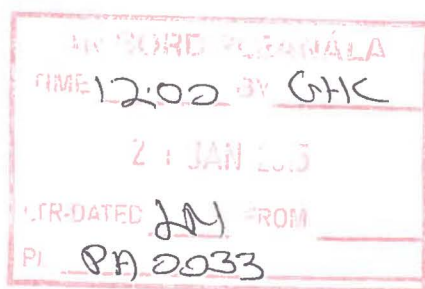 AN BORD PLEANÁLA
TIME 12:00 BY GHK
JAN
LTR-DATED FROM
PL PA 0033